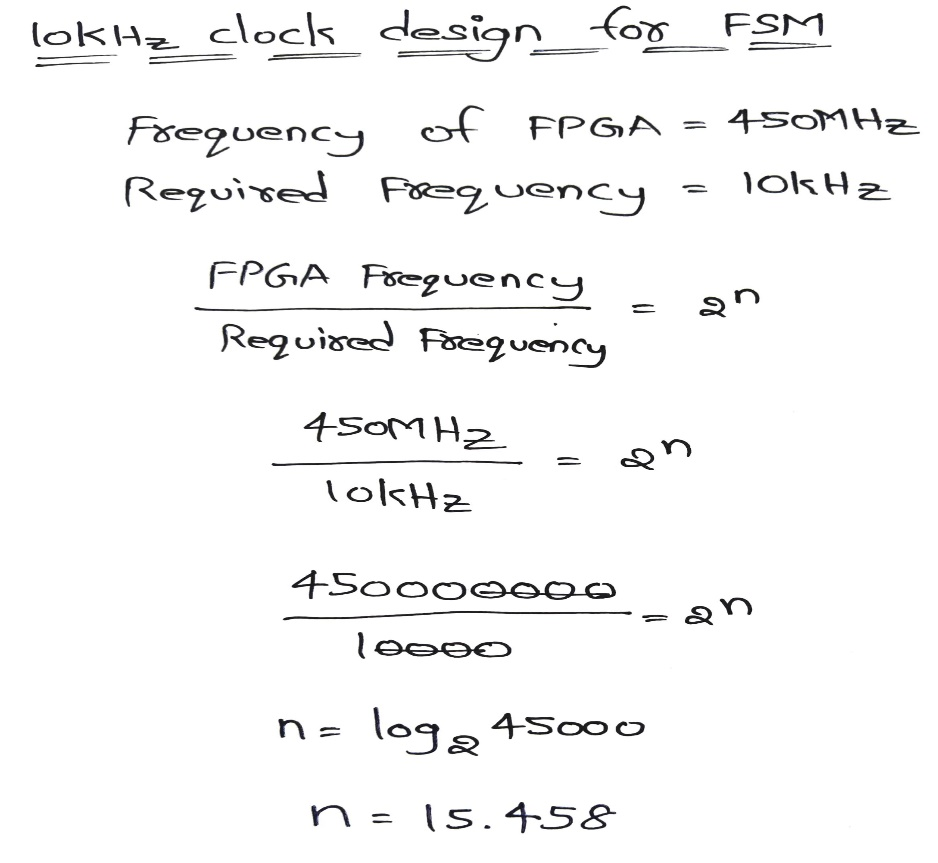 10kHz clock design for FSM
Frequency of FPGA = 450MHz
Required Frequency = 10kHz
FPGA Frequency
Required Frequency
= 2^n
450MHz
10kHz
= 2^n
450000000
10000
= 2^n
n = log₂ 45000
n = 15.458